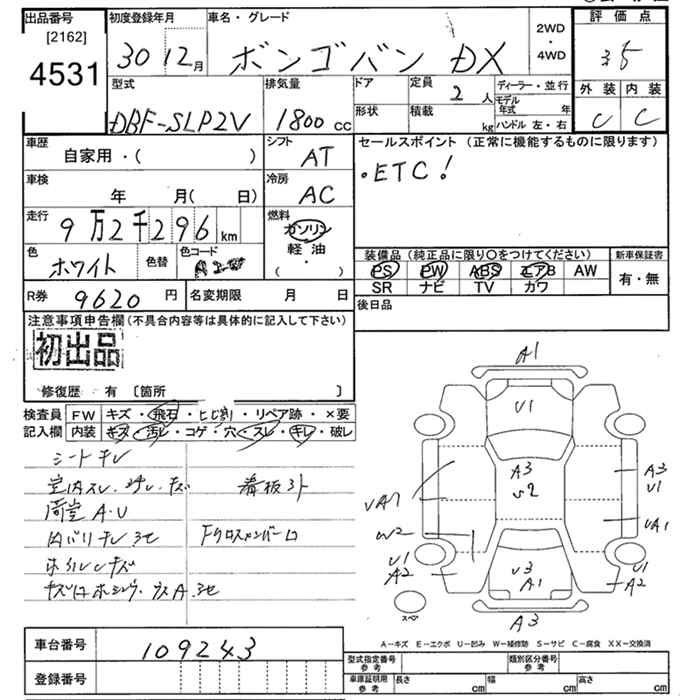 出品番号
[2162]
4531
初度登録年月
30 12月
車名・グレード
ボンゴバン DX
2WD
・
4WD
評価点
3.5
外装 内装
C C
型式
DBF-SLP2V
排気量
1800 cc
ドア
形状
定員
2人
積載
kg
ディーラー・並行
モデル年式 年
ハンドル 左・右
車歴
自家用・( )
シフト
AT
車検
年 月(日)
冷房
AC
走行
9万2千296 km
燃料
ガソリン
軽油
・
( )
色
ホワイト
色替
色コード
R券
9620 円
名変期限 月 日
セールスポイント (正常に機能するものに限ります)
・ETC!
装備品(純正品に限り○をつけてください)
PS PW ABS エアB AW
SR ナビ TV カワ
新車保証書
有・無
後日品
注意事項申告欄(不具合内容等は具体的に記入して下さい)
初出品
修復歴 有 〔箇所 〕
検査員 FW キズ・飛石・ヒビ割・リペア跡・×要
記入欄 内装 キズ・汚レ・コゲ・穴・スレ・キレ・破レ
シートキレ
室内スレ・ヨゴレ・キズ
看板跡
荷室A・U
内バリキレ
Fクロスメンバー凹
A1
U1
A3
U2
A3
U1
UA1
W2
UA1
U1
A2
U3
A1
U1
A2
スペア
A3
A-キズ E-エクボ U-凹み W-補修跡 S-サビ C-腐食 XX-交換済
車台番号
109243
登録番号
型式指定番号 参考
類別区分番号 参考
車庫証明用 参考
長さ cm
幅 cm
高さ cm